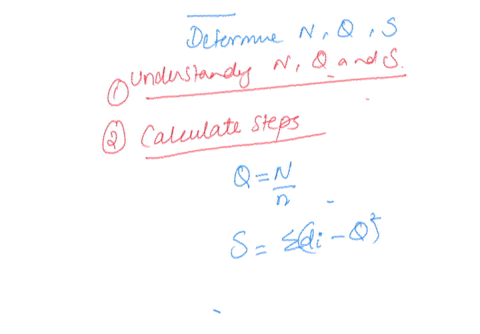 Determine N, Q, S
① Understandy N, Q and S.
② Calculate Steps
Q = N/n
S = Σ(di - Q)²